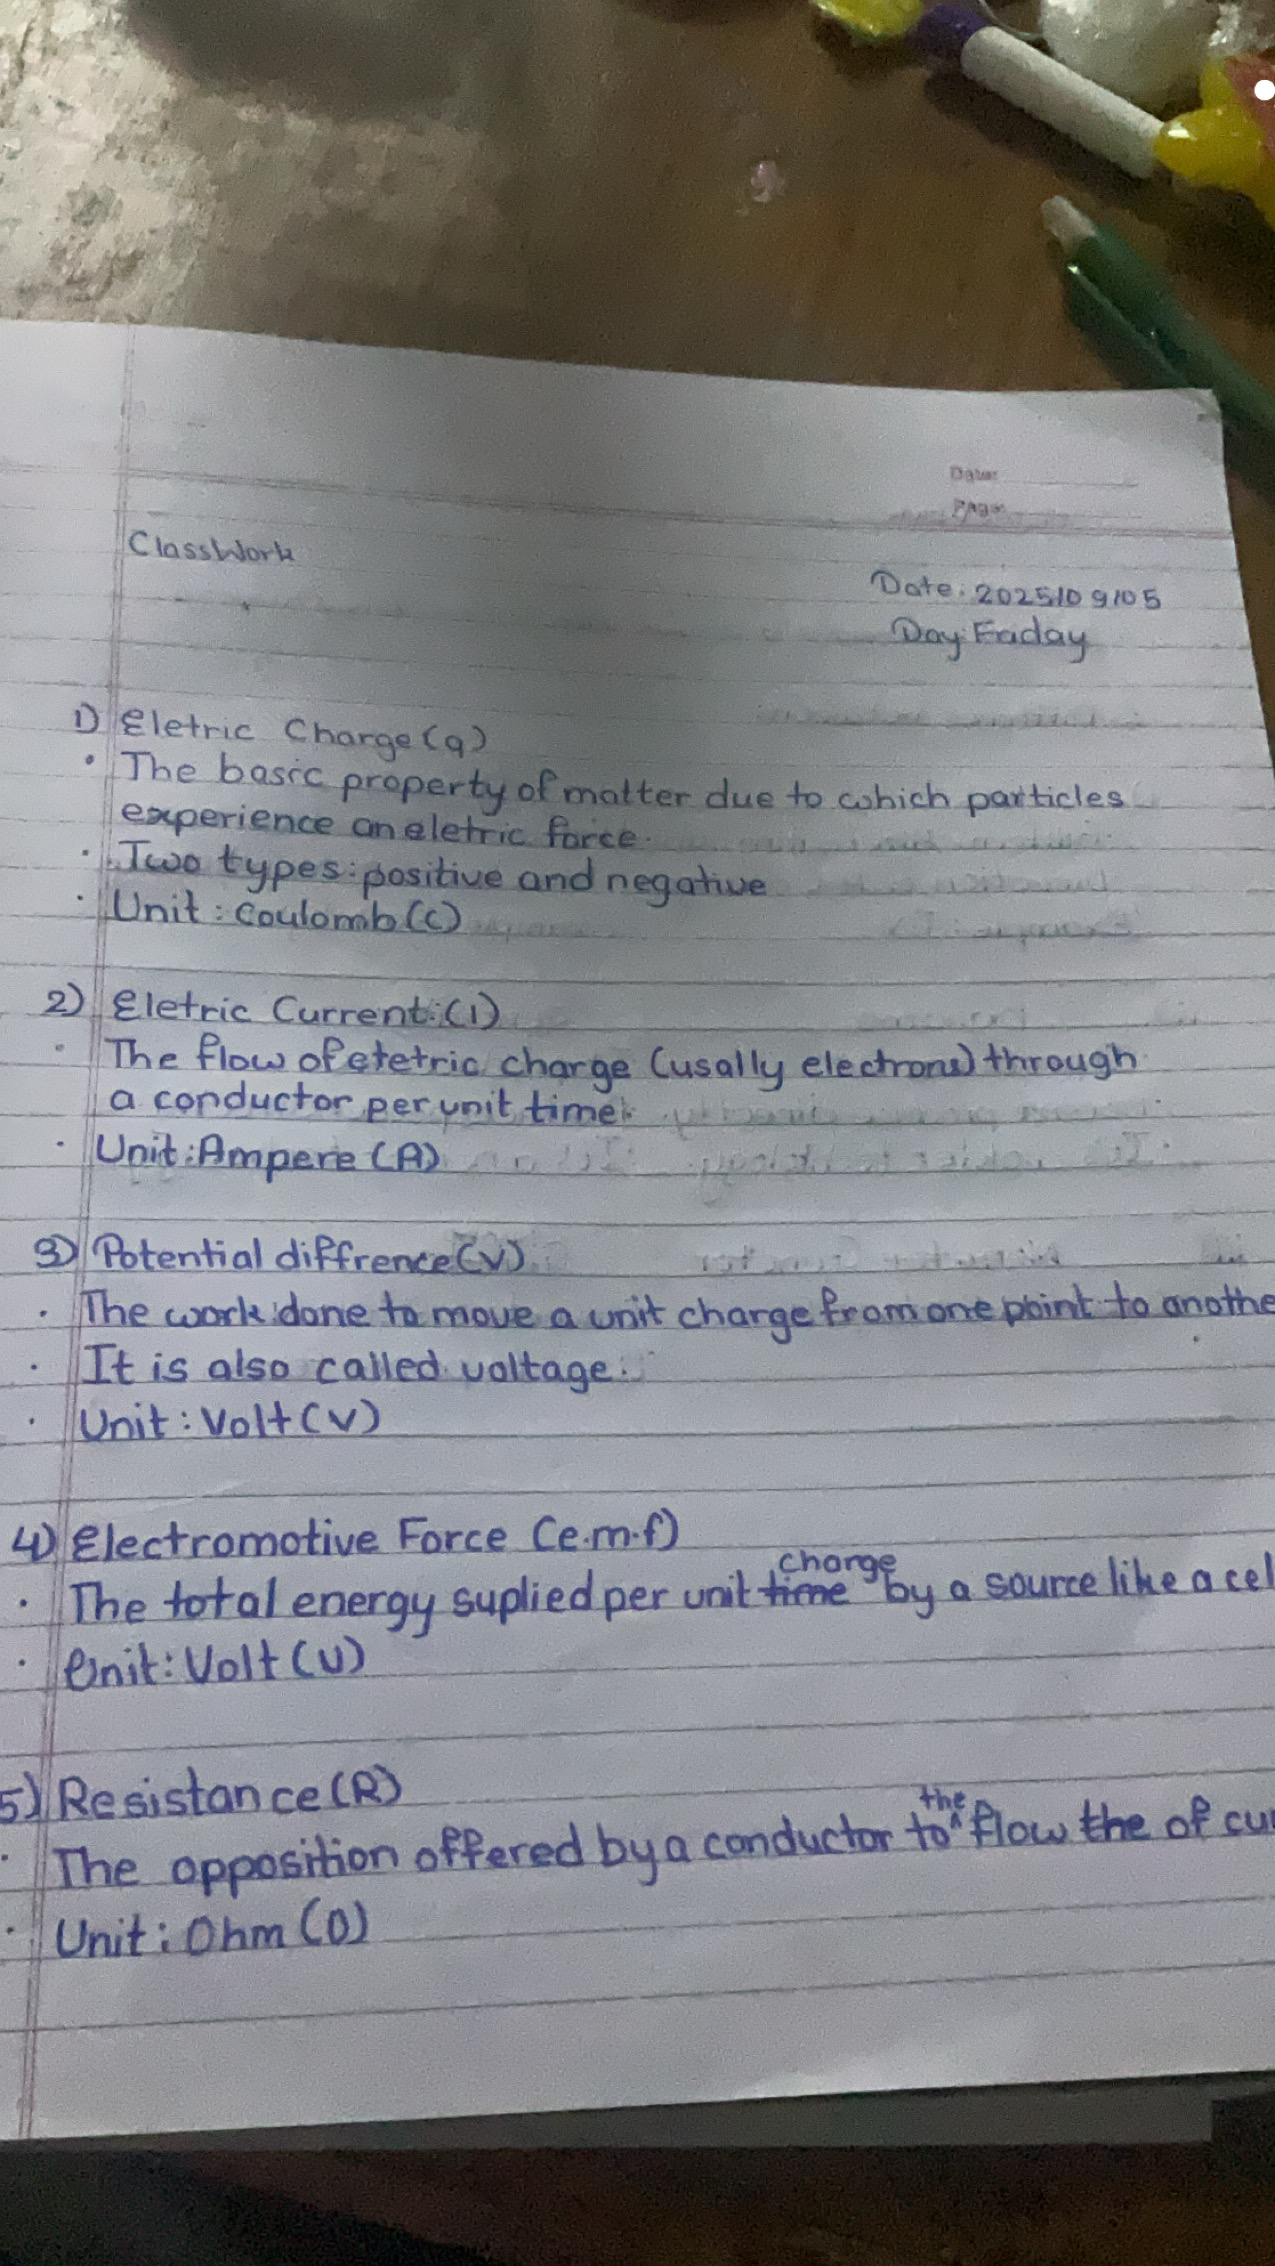 Date:
Page:
ClassWork
Date: 2025/09/05
Day: Friday
1) Eletric Charge (q)
• The basic property of matter due to which particles
experience an eletric force.
• Two types: positive and negative
• Unit: Coulomb (C)
2) Eletric Current: (I)
• The flow of eletric charge (usally electrons) through
a conductor per unit time.
• Unit: Ampere (A)
3) Potential diffrence (V)
• The work done to move a unit charge from one point to anothe
• It is also called voltage.
• Unit: Volt (V)
4) Electromotive Force (e.m.f)
charge
• The total energy suplied per unit time by a source like a cel
• Unit: Volt (V)
5) Resistance (R)
the
• The opposition offered by a conductor to ^ flow the of cu
• Unit: Ohm (O)